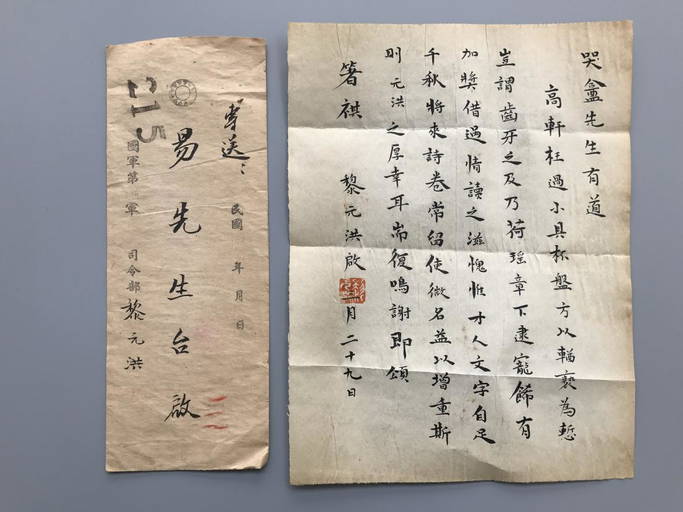 215
專送
易先生台啟
民國 年 月 日
國軍第 軍 司令部黎元洪
哭盦先生有道
高軒枉過小具杯盤方以輶褻為慙
豈謂齒牙之及乃荷瑤章下逮寵飾有
加獎借過情讀之滋愧惟才人文字自足
千秋將來詩卷常留使微名益以增重斯
則元洪之厚幸耳耑復鳴謝即頌
箸祺 黎元洪啟 二月二十九日